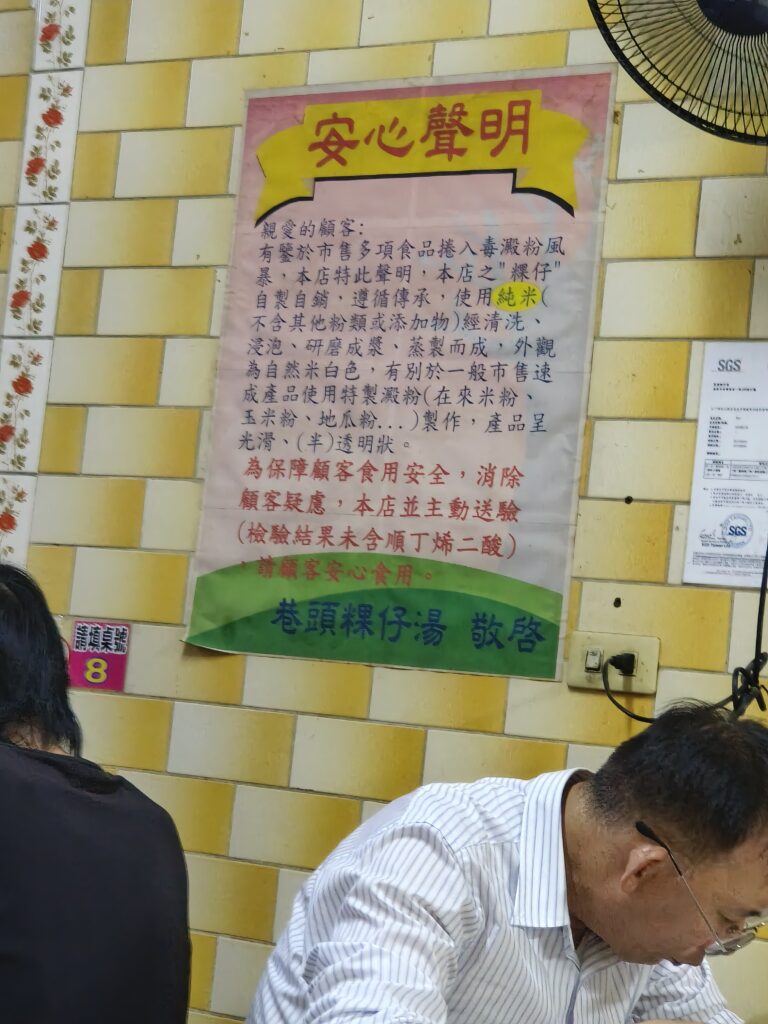 安心聲明
親愛的顧客:
有鑒於市售多項食品捲入毒澱粉風
暴，本店特此聲明，本店之"粿仔"
自製自銷，遵循傳承，使用純米(
不含其他粉類或添加物)經清洗、
浸泡、研磨成漿、蒸製而成，外觀
為自然米白色，有別於一般市售速
成產品使用特製澱粉(在來米粉、
玉米粉、地瓜粉...)製作，產品呈
光滑、(半)透明狀。
為保障顧客食用安全，消除
顧客疑慮，本店並主動送驗
(檢驗結果未含順丁烯二酸)
、請顧客安心食用。
巷頭粿仔湯 敬啓
請填桌號
8
SGS
SGS